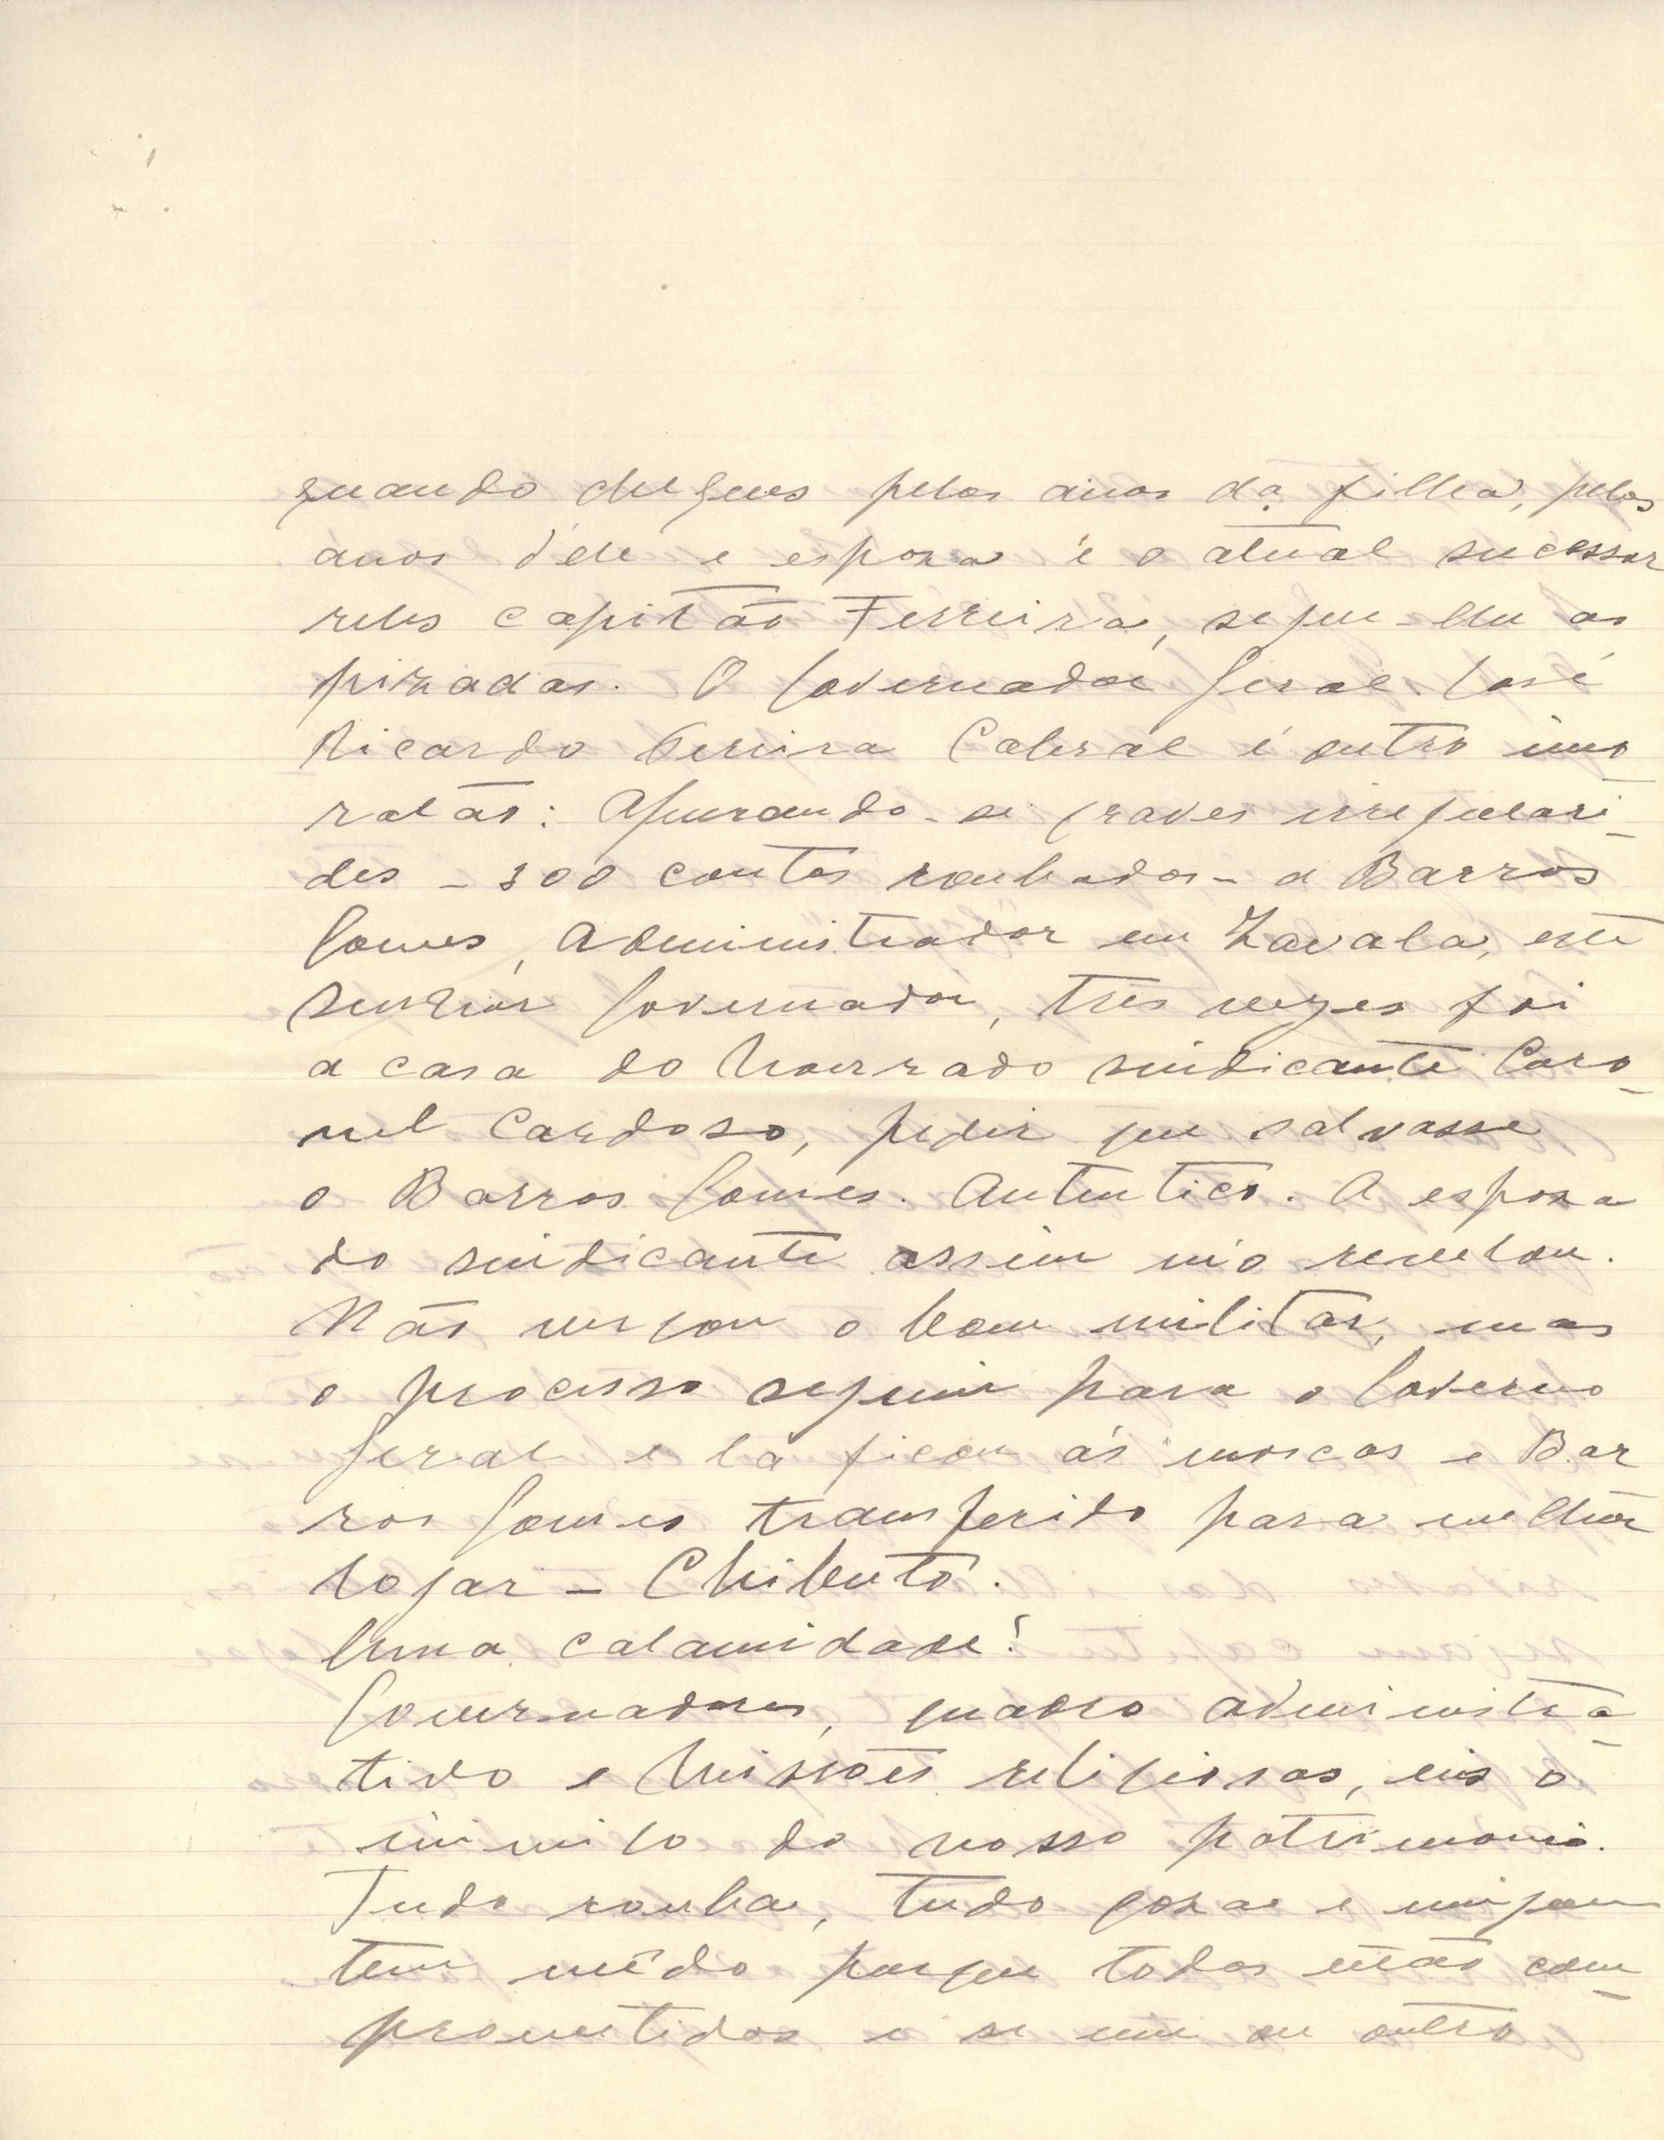 quando chegues pelos anos da filha, pelos
anos d'ele e espoza é o atual sucessor
reles capitão Ferreira, segue-lhe as
pizadas. O Governador Geral José
Ricardo Pereira Cabral é outro imo
ralão: Apurando-se graves irregulari-
des - 300 contos roubados - a Barros
Gomes, Administrador em Zavala, este
senhor Governador, três vezes foi
a casa do honrado sindicante Coro-
nel Cardoso, pedir que salvasse
o Barros Gomes. Autentico. A espoza
do sindicante assim m'o revelou.
Não vergou o bom militar, mas
o processo seguiu para o Governo
Geral e lá ficou ás moscas e Bar
ros Gomes transferido para melhor
logar - Chibuto.
Uma calamidade!
Governadores, quadro administra-
tivo e Missões religiosas, eis o
inimigo do nosso patrimonio.
Tudo rouba, tudo goza e ninguem
tem mêdo porque todos estão com-
prometidos e se um ou outro